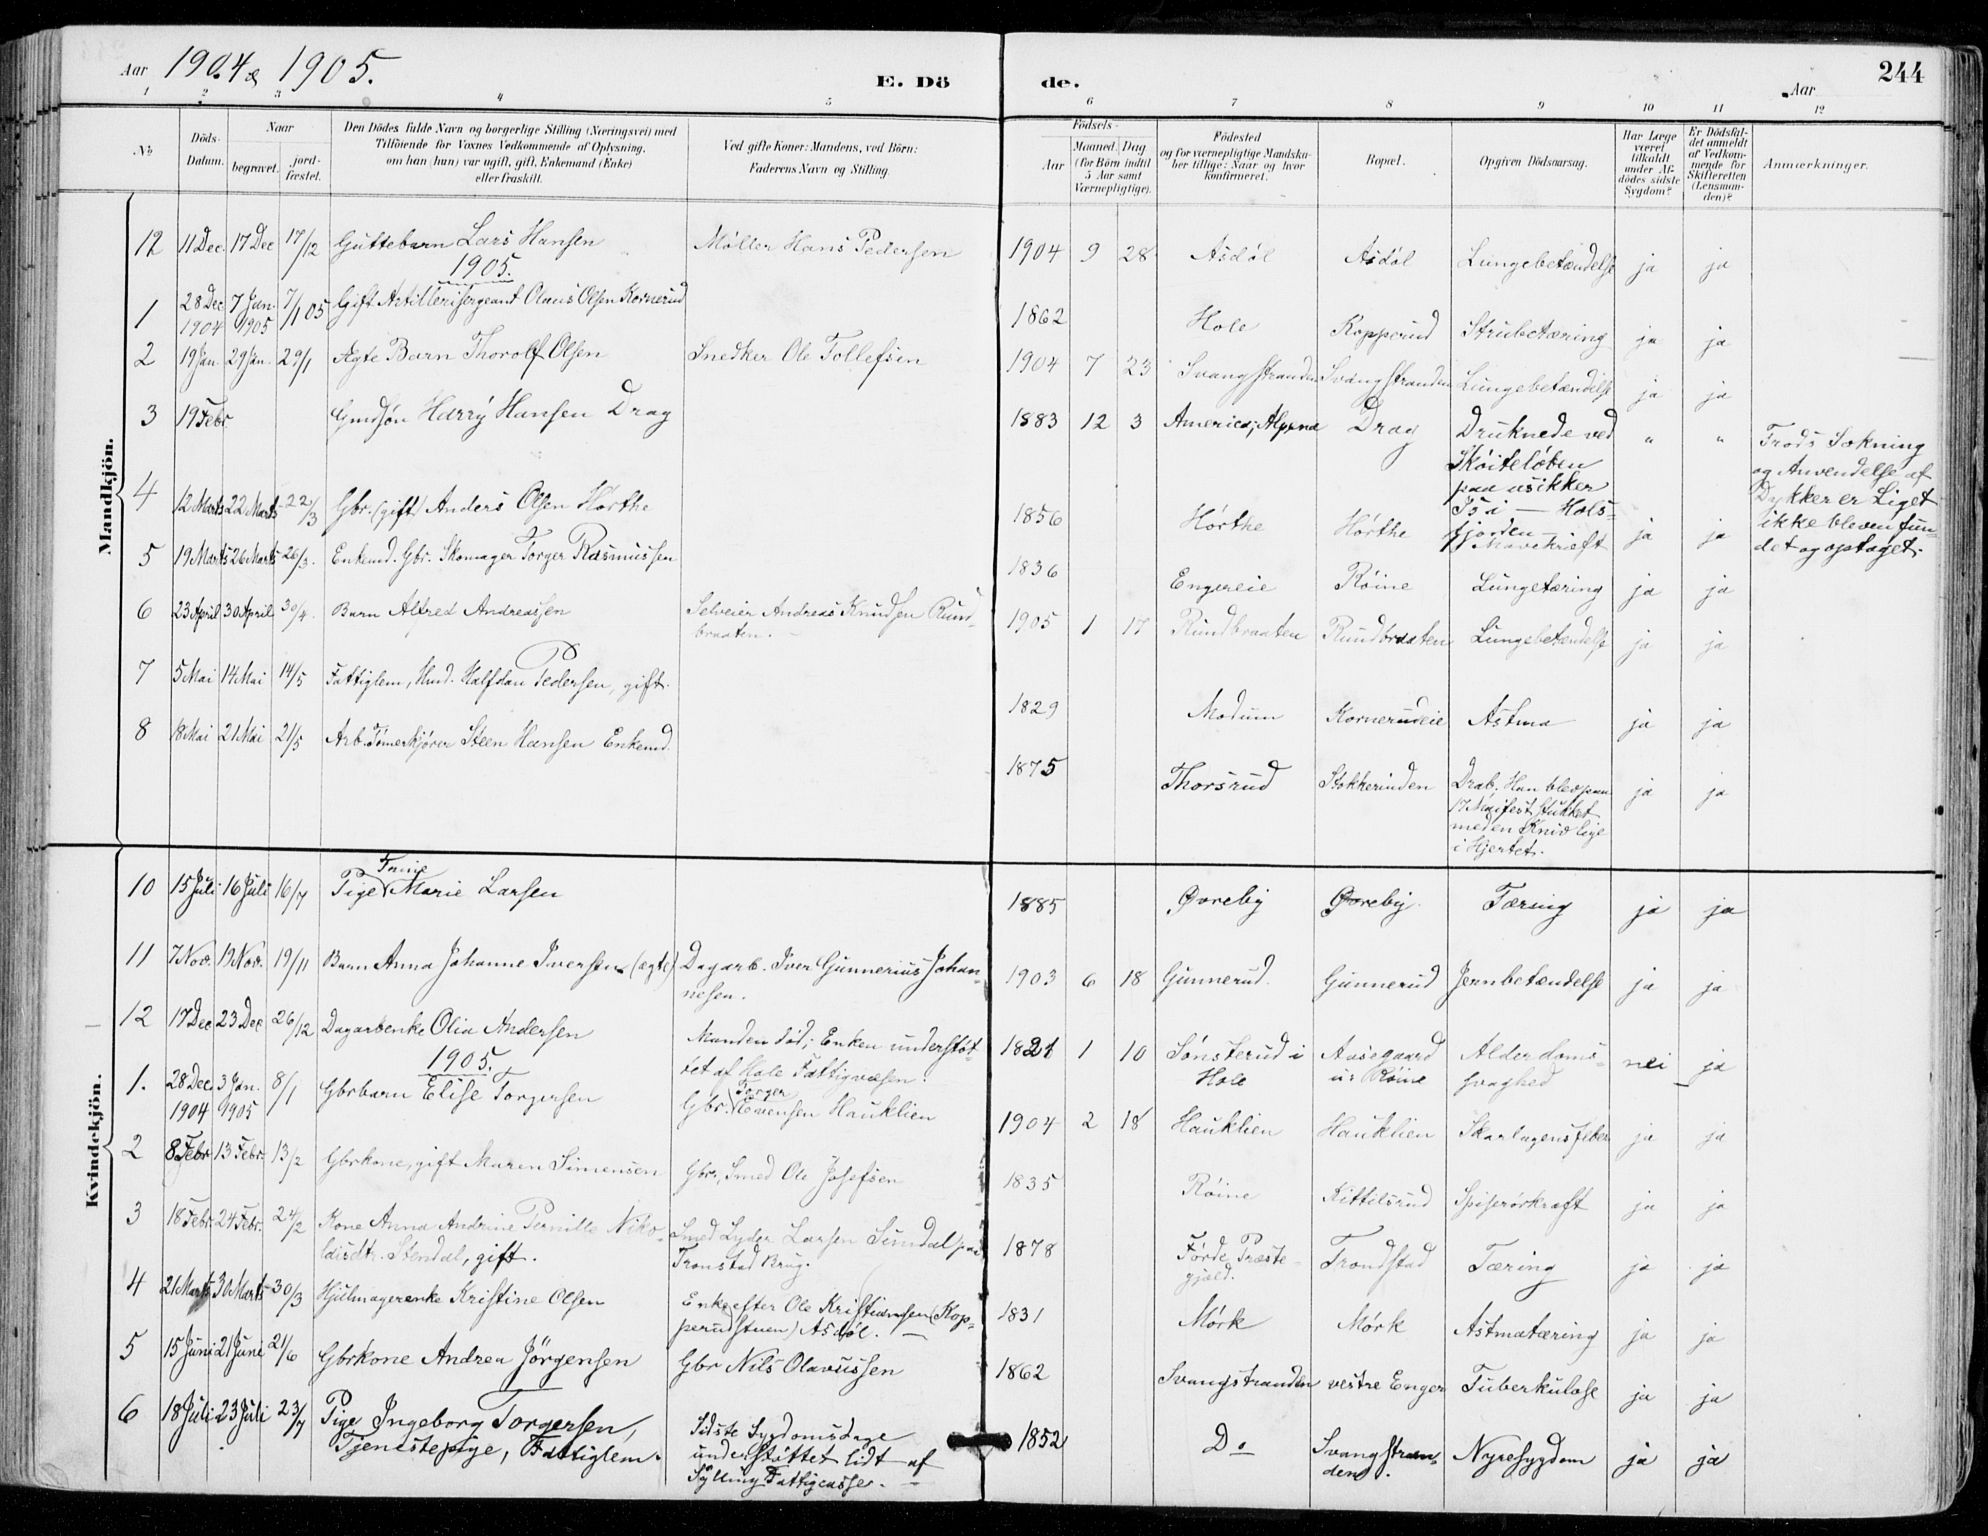 Aar 1904 & 1905.
E. Dö
de.
Aar
244
1 2 3 4 5 6 7 8 9 10 11 12
No
Döds-Datum.
Naar
begravet.
jord-fæstet.
Den Dödes fulde Navn og borgerlige Stilling (Næringsvei) med
Tilföiende for Voxnes Vedkommende af Oplysning,
om han (hun) var ugift, gift, Enkemand (Enke)
eller fraskilt.
Ved gifte Koner: Mandens, ved Börn:
Faderens Navn og Stilling.
Födsels-
Aar
Maaned. Dag
(for Börn indtil
5 Aar samt
Værnepligtige).
Födested
og for værnepligtige Mandska-
ber tillige: Naar og hvor
konfirmeret.
Bopæl.
Opgiven Dödsaarsag.
Har Læge
været
tilkaldt
under Af-
dödes sidste
Sygdom?
Er Dödsfal-
det anmeldt
af Vedkom-
mende for
Skifteretten
(Lensman-
den)?
Anmærkninger.
Mandkjön.
12 11 Dec. 17 Dec 17/12 Guttebarn Lars Hansen Møller Hans Pedersen 1904 9 28 Asdøl Asdøl Lungebetændelse ja ja
1905.
1 28 Dec. 1904 7 Jan. 1905 7/1 05 Gift Artillerisergeant Olaus Olsen Kornerud 1862 Hole Kopperud Strubetæring ja ja
2 19 Jan. 29 Jan. 29/1 Ægte Barn Thorolf Olsen Snedker Ole Tollefsen 1904 7 23 Svangstranden Svangstranden Lungebetændelse ja ja
3 19 Febr. Gmdsøn Harry Hansen Drag 1883 12 3 America; Alpena Drag Druknede ved " " Trods Søkning
Skøiteløben og Anvendelse af
paa usikker Dykker er Liget
Is i — Hols- ikke bleven fun-
fjorden — det og optaget.
4 12 Marts 22 Marts 22/3 Gbr. (gift) Anders Olsen Hørthe 1856 Hørthe Hørthe Mavekræft ja ja
5 19 Marts 26 Marts 26/3. Enkemd. Gbr. Skomager Torger Rasmussen 1836 Engereie Røine Lungetæring ja ja
6 23 April 30 April 30/4. Barn Alfred Andreassen Selveier Andreas Knudsen Rund-
braaten. 1905 1 17 Rundbraaten Rundbraaten Lungebetændelse ja ja
7 5 Mai 14 Mai 14/5 Fattiglem, Hmd. Halfdan Pedersen, gift. 1829 Modum Kornerudeie Astma ja ja
8 18 Mai 21 Mai 21/5 Arb. Tømerkjører Steen Hansen Enkemd. 1875 Thorsrud Stokkerinden Drab. Han blev paa ja ja
17 Maifest stukket
med en Kniv lige
i Hjertet.
Kvindekjön.
10 15 Juli 16 Juli 16/7 Pige Trine Marie Larsen 1885 Øvreby Øvreby. Tæring ja ja
11 7 Nov. 19 Nov. 19/11 Barn Anna Johanne Iversen (ægte) Dagarb. Iver Gunnerius Johan-
nesen. 1903 6 18 Gunnerud. Gunnerud Jernbetændelse ja ja
12 17 Dec 23 Dec 26/12 Dagarbenke Olia Andersen Manden død; Enken understøt-
tet af Hole Fattigvæsen. 1821 1 10 Sønsterud i Aasegaard Alderdoms- nei ja
Hole u: Røine svaghed
1905.
1. 28 Dec. 1904 3 Jan. 1905 8/1 Gbrbarn Elise Torgersen Gbr. Torger Evensen Hauklien 1904 2 18 Hauklien Hauklien Skarlagensfeber ja ja
2 8 Febr 13 Febr. 13/2 Gbrkone, gift Maren Simensen Gbr., Smed Ole Josefsen 1835 Røine Kittilsrud Spiserørkræft ja ja
3 18 Febr. 24 Febr. 24/2 Kone Anna Andrine Pernille Niko- Smed Lyder Larsen Sundal paa 1878 Førde Præste- Trondstad Tæring ja ja
laisdtr. Stendal, gift. Tronstad Brug. gjæld.
4 21 Marts 30 Marts 30/3 Hjulmagerenke Kristine Olsen Enke efter Ole Kristiansen (Kop- 1831 Mørk Mørk Astmatæring ja ja
perudstuen) Asdøl. —
5 15 Juni 21 Juni 21/6 Gbrkone Andrea Jörgensen Gbr Nils Olavussen 1862 Svangstranden vestre Enger Tuberkulose ja ja
6 18 Juli 23 Juli 23/7 Pige Ingeborg Torgersen, Sidste Sygdomsdage 1852 Do Svangstran- Nyresygdom ja ja
Tjenestepige, Fattiglem. understøttet lidt af den.
Sylling Fattigcasse. —